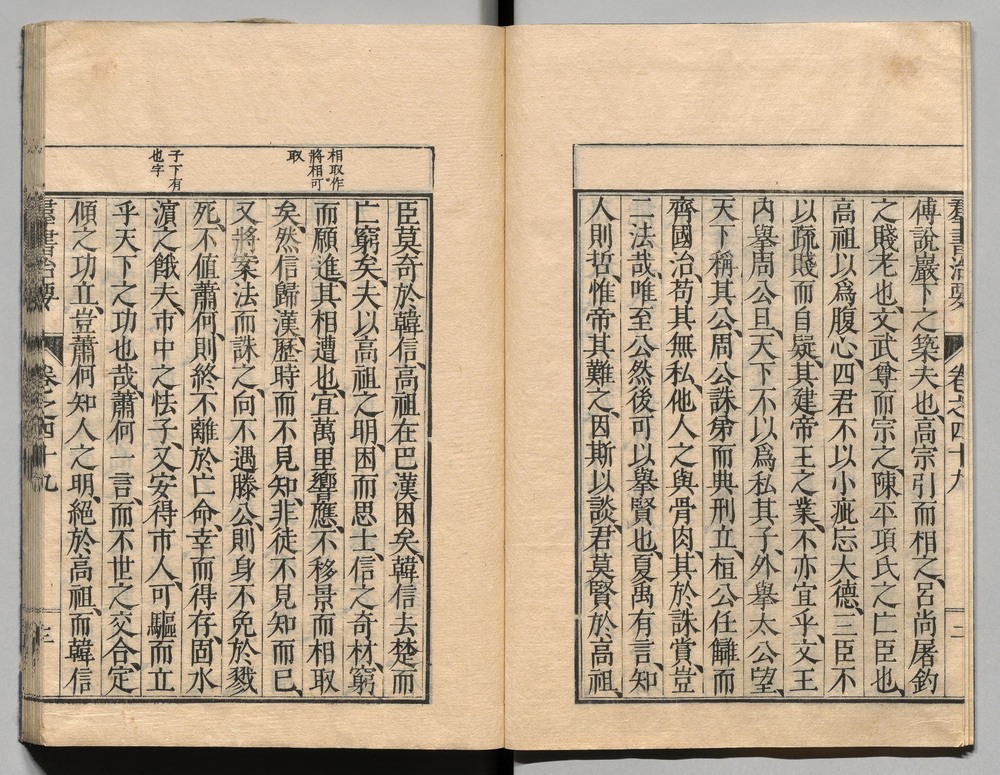 羣書治要 卷之四十九 二
傅說巖下之築夫也、高宗引而相之、呂尚屠釣
之賤老也、文武尊而宗之、陳平項氏之亡臣也、
高祖以爲腹心、四君不以小疵忘大德、三臣不
以疏賤而自疑、其建帝王之業、不亦宜乎、文王
內舉周公旦、天下不以爲私其子、外舉太公望、
天下稱其公、周公誅弟而典刑立、桓公任讎而
齊國治、苟其無私、他人之與骨肉、其於誅賞、豈
二法哉、唯至公然後可以舉賢也、夏禹有言、知
人則哲、惟帝其難之、因斯以談、君莫賢於高祖、
臣莫奇於韓信、高祖在巴漢困矣、韓信去楚而
亡窮矣、夫以高祖之明、困而思士、信之奇材、窮
而願進、其相遭也、宜萬里響應、不移景而相取
矣、然信歸漢、歷時而不見知、非徒不見知而已、
又將案法而誅之、向不遇滕公、則身不免於戮
死、不值蕭何、則終不離於亡命、幸而得存、固水
濵之餓夫、市中之怯子、又安得市人、可驅而立
乎天下之功也哉、蕭何一言、而不世之交合、定
傾之功立、豈蕭何知人之明、絕於高祖、而韓信
相取作
將相可
取
子下有
也字
羣書治要 卷之四十九 三